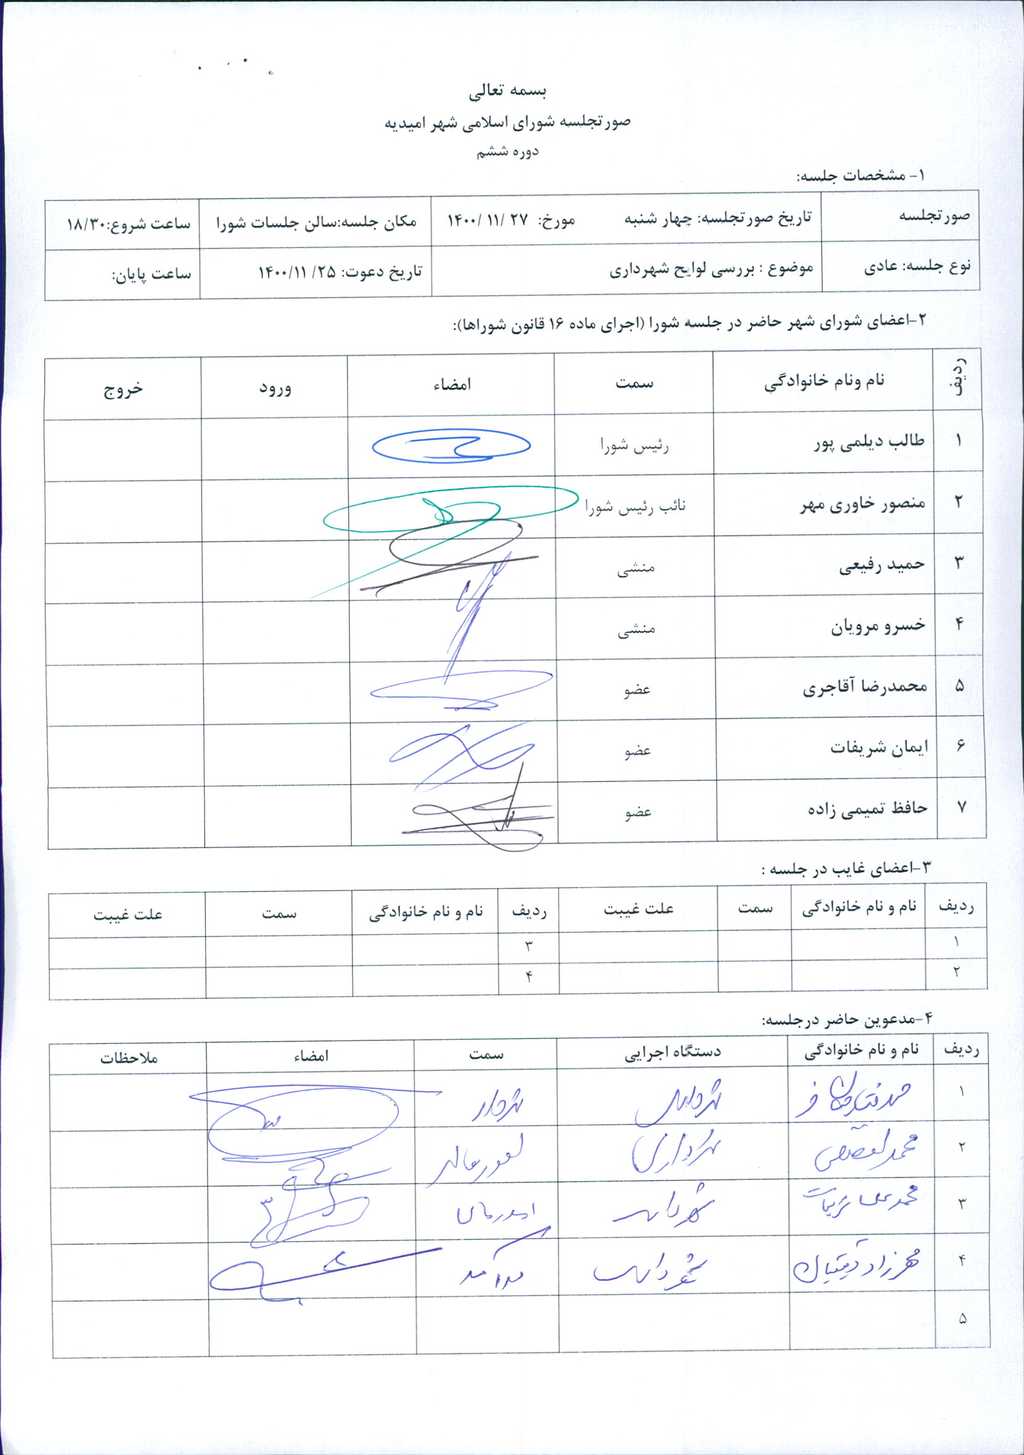 بسمه تعالی
صورتجلسه شورای اسلامی شهر امیدیه
دوره ششم
۱- مشخصات جلسه:
صورتجلسه تاریخ صورتجلسه: چهار شنبه مورخ: ۲۷ /۱۱ /۱۴۰۰ مکان جلسه:سالن جلسات شورا ساعت شروع:۱۸/۳۰
نوع جلسه: عادی موضوع : بررسی لوایح شهرداری تاریخ دعوت: ۲۵/ ۱۴۰۰/۱۱ ساعت پایان:
۲-اعضای شورای شهر حاضر در جلسه شورا (اجرای ماده ۱۶ قانون شوراها):
ردیف نام ونام خانوادگی سمت امضاء ورود خروج
۱ طالب دیلمی پور رئیس شورا
۲ منصور خاوری مهر نائب رئیس شورا
۳ حمید رفیعی منشی
۴ خسرو مرویان منشی
۵ محمدرضا آقاجری عضو
۶ ایمان شریفات عضو
۷ حافظ تمیمی زاده عضو
۳-اعضای غایب در جلسه :
ردیف نام و نام خانوادگی سمت علت غیبت ردیف نام و نام خانوادگی سمت علت غیبت
۱ ۳
۲ ۴
۴-مدعوین حاضر درجلسه:
ردیف نام و نام خانوادگی دستگاه اجرایی سمت امضاء ملاحظات
۱ شهرداری شهردار
۲ محمد شهرداری
۳ محمد علی شهرداری
۴ شهرداری درآمد
۵